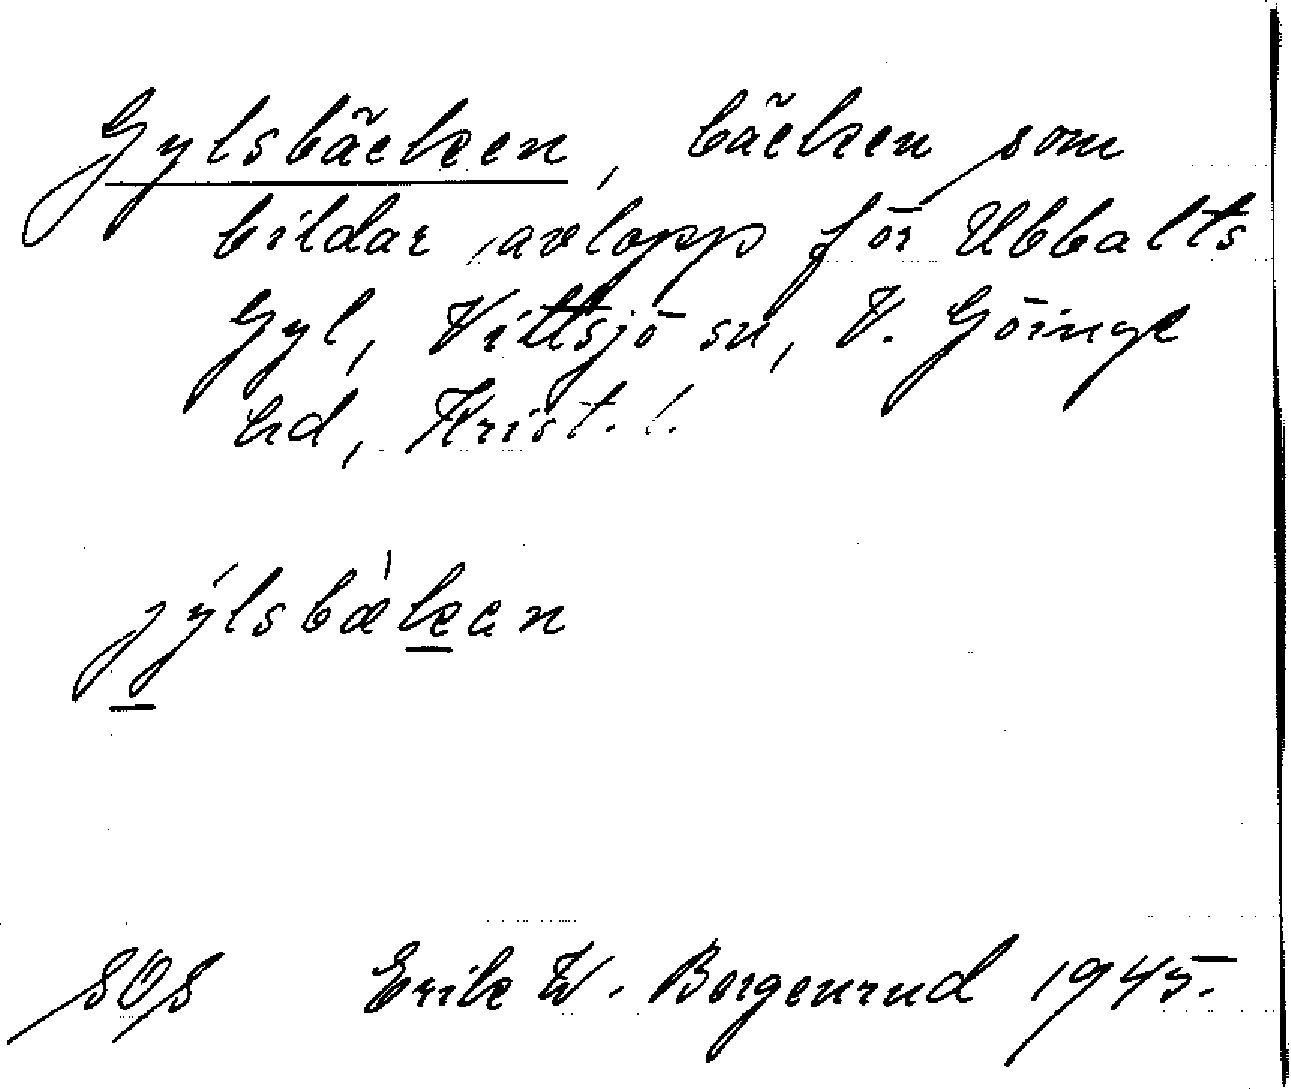 Gylsbäcken, bäcken som
bildar avlopp för Ubbalts
Gyl, Vittsjö sn, V. Göinge
hd, Krist. l.
jýlsbæ̀kan
SOS Erik W. Borgenrud 1945.